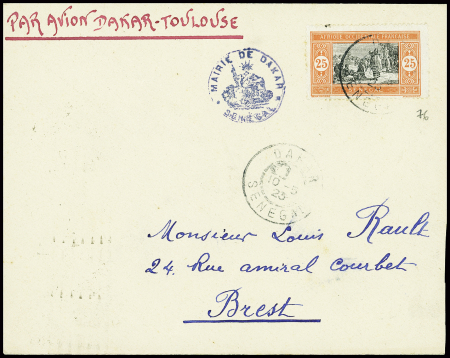 PAR AVION DAKAR-TOULOUSE
AFRIQUE OCCIDENTALE FRANÇAISE
25 25
MAIRIE DE DAKAR
SENEGAL
76
DAKAR
25
SENEGAL
Monsieur Louis Rault
24. Rue amiral courbet
Brest